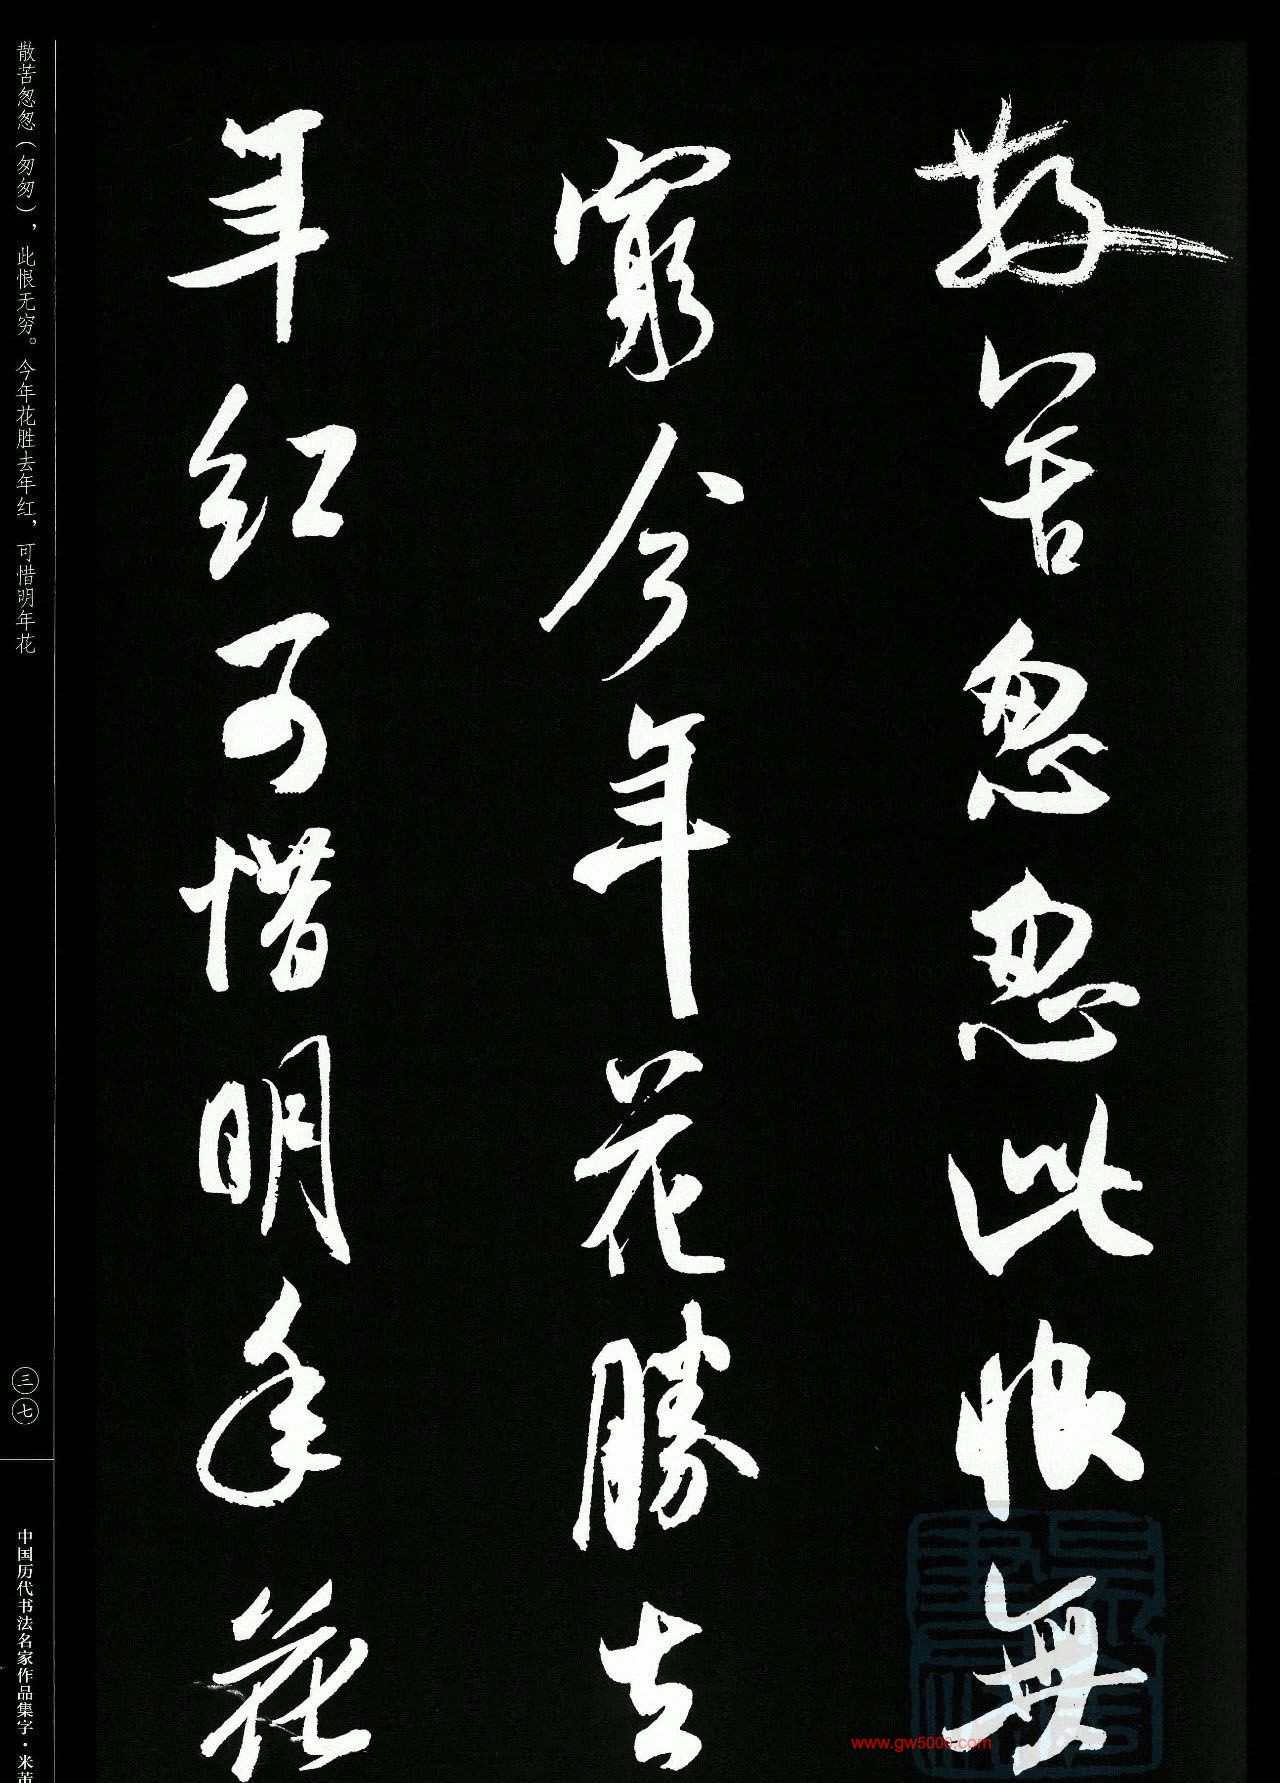 散苦怱怱此恨無
窮今年花勝去
年红可惜明年花
散苦怱怱（匆匆），此恨无穷。今年花胜去年红，可惜明年花
三七
中国历代书法名家作品集字·米芾
www.gw5000.com